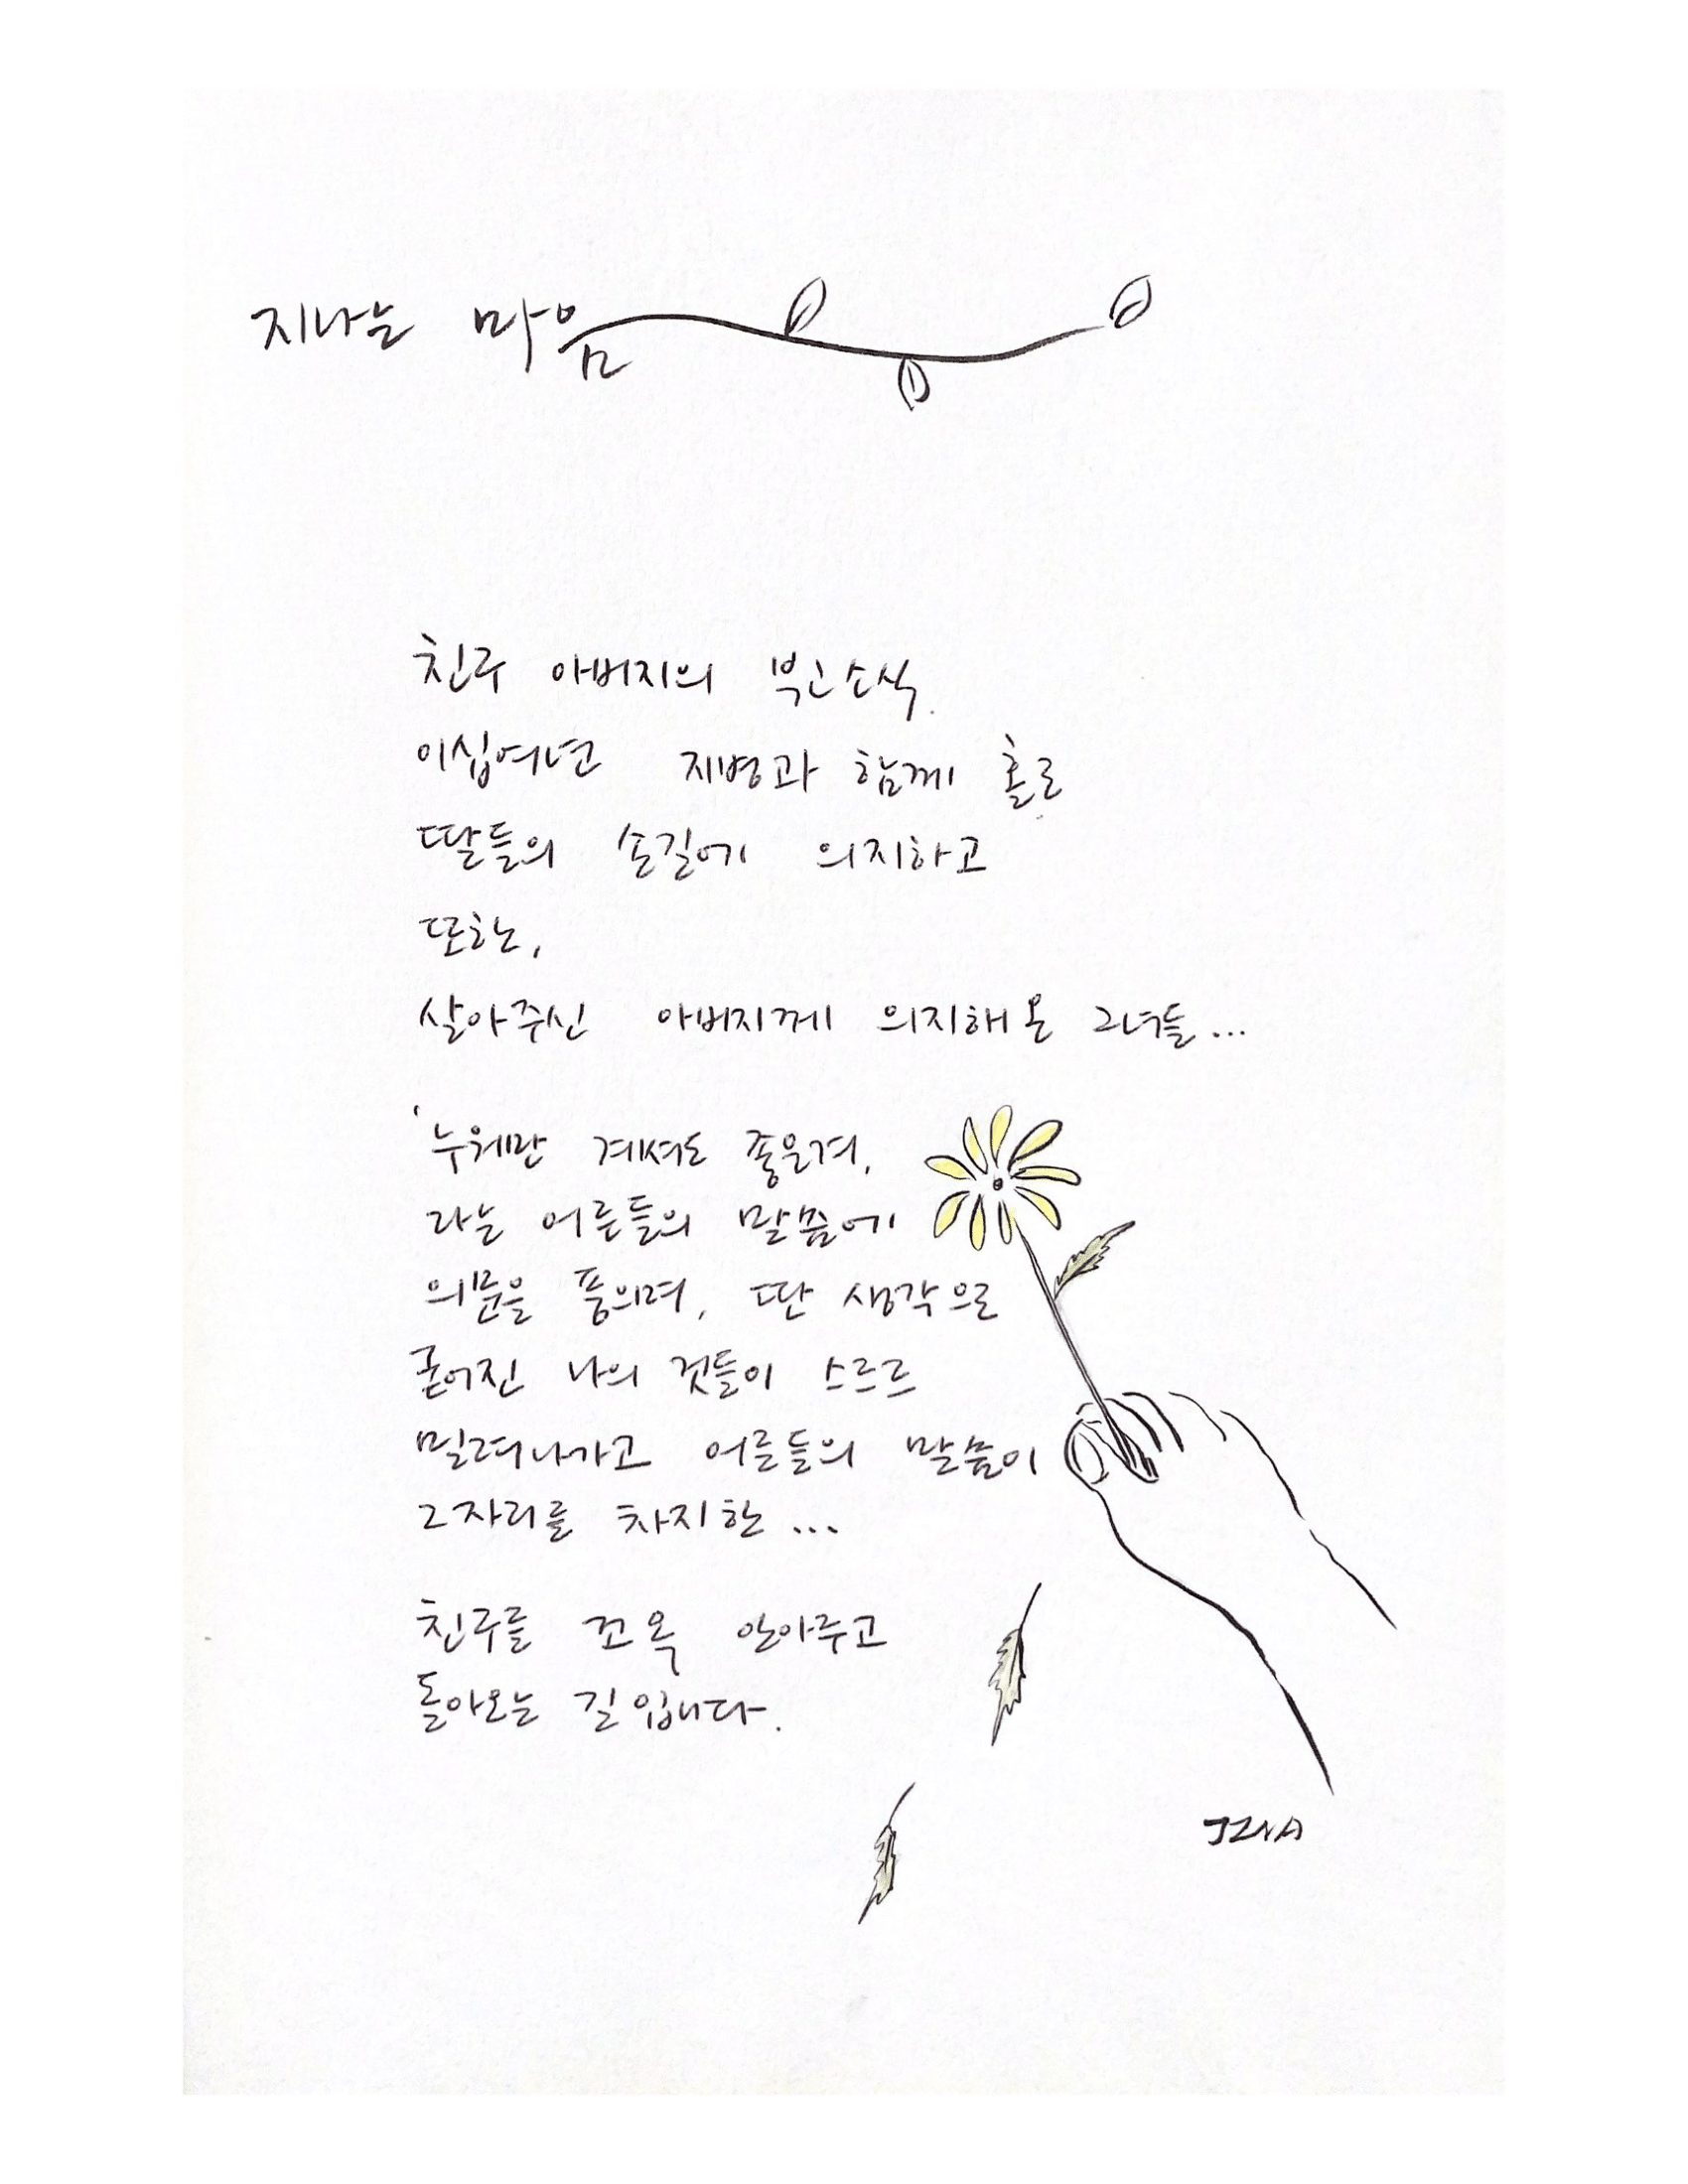 지나는 마음
친구 아버지의 부고소식.
이십여년 지병과 함께 홀로
딸들의 손길에 의지하고
또한,
살아주신 아버지께 의지해 온 그녀들...
'누워만 계셔도 좋은겨,
라는 어른들의 말씀에
의문을 품으며, 딴 생각으로
굳어진 나의 것들이 스르르
밀려나가고 어른들의 말씀이
그자리를 차지한...
친구를 꼬옥 안아주고
돌아오는 길입니다.